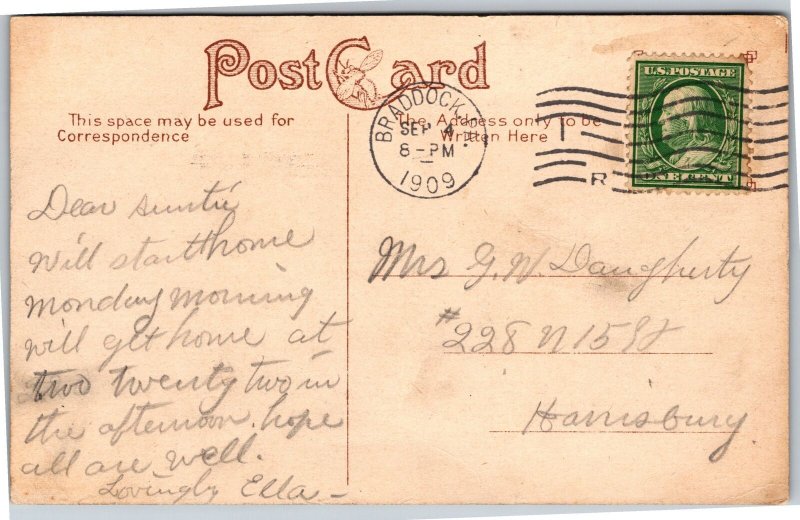 Post Card
This space may be used for
Correspondence
The Address only to be
Written Here
BRADDOCK, PA.
SEP 4
8-PM
1909
U.S. POSTAGE
ONE CENT
R
Dear auntie
will start home
monday morning
will get home at
two twenty two in
the afternoon. hope
all are well.
Lovingly Ella-
Mrs G. W. Daugherty
#228 N 15 St
Harrisburg